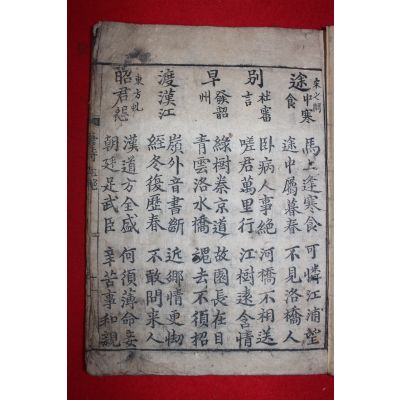 途中寒食
宋之問
馬上逢寒食 可憐江浦望
途中屬暮春 不見洛橋人
別杜審言
卧病人事絶 河橋不相送
嗟君萬里行 江樹遠含情
早發韶州
綠樹秦京道 故園長在目
青雲洛水橋 魂去不須招
渡漢江
嶺外音書斷 近鄉情更怯
經冬復歷春 不敢問來人
昭君怨
東方虬
漢道方全盛 何須薄命妾
朝廷足武臣 辛苦事和親